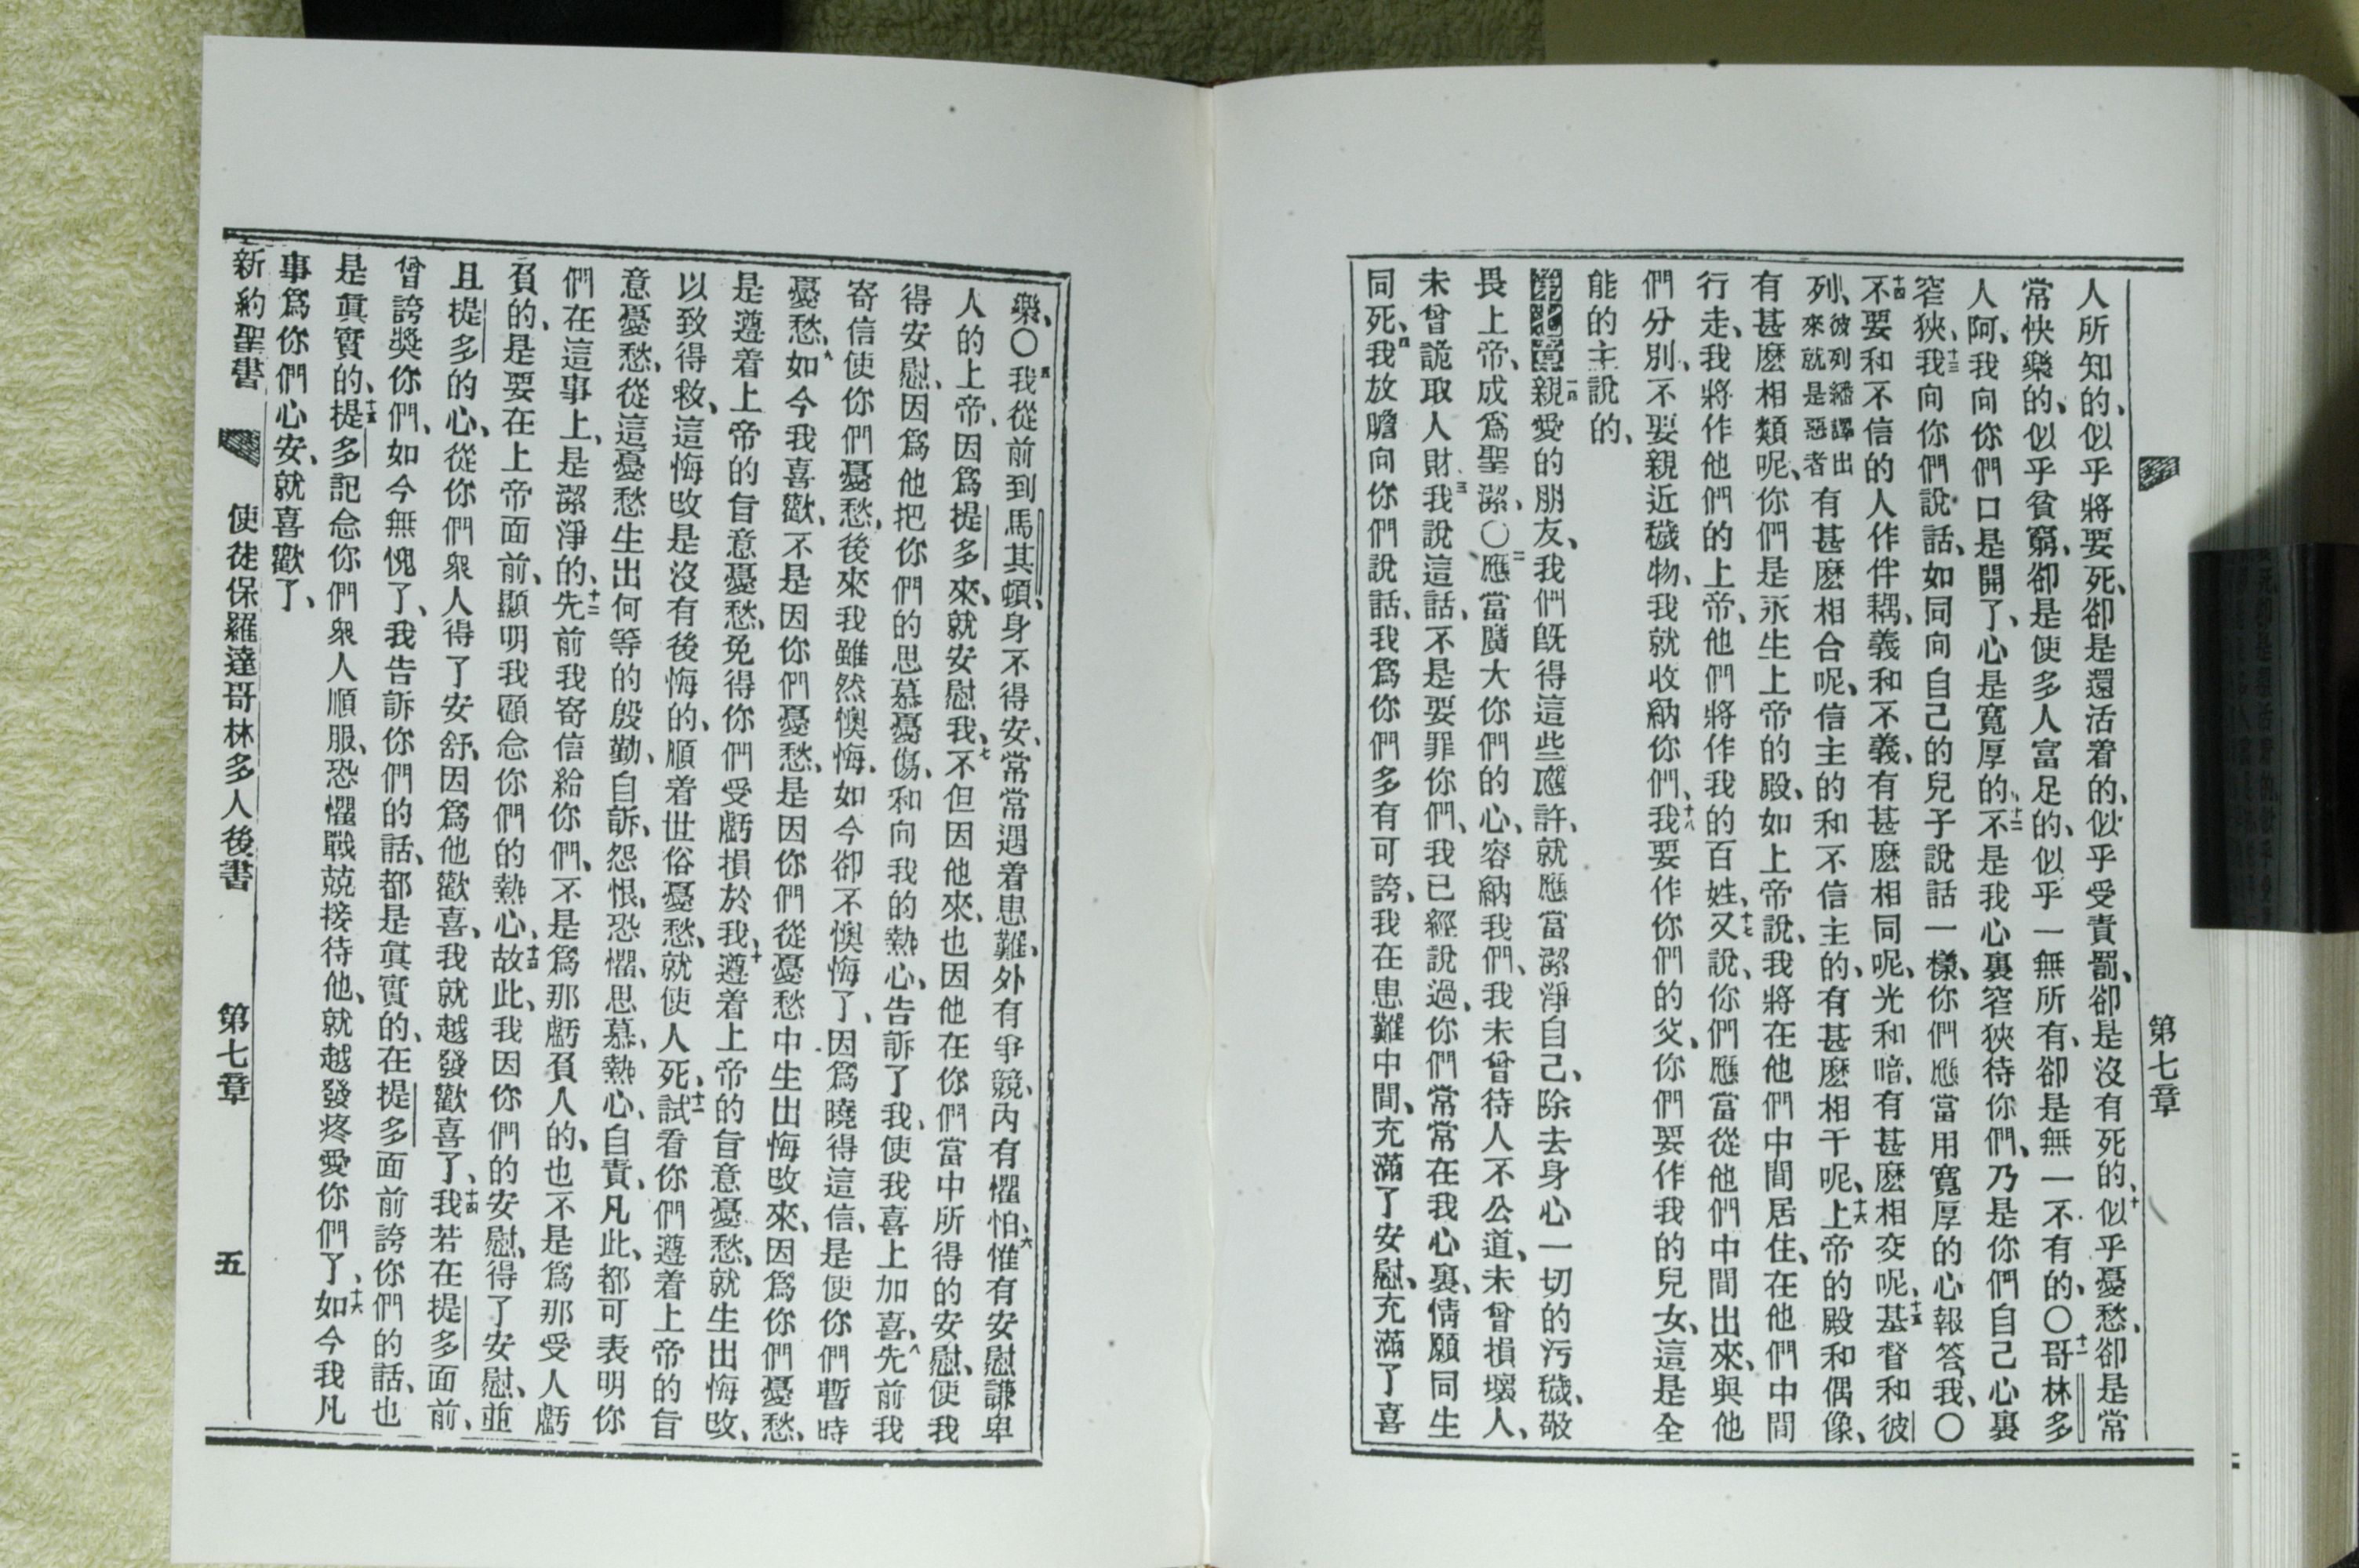 第七章
人所知的、似乎將要死、卻是還活着的、似乎受責罰、卻是沒有死的、十似乎憂愁、卻是常
常快樂的、似乎貧窮、卻是使多人富足的、似乎一無所有、卻是無一不有的、〇十一哥林多
人阿、我向你們口是開了、心是寬厚的、十二不是我心裏窄狹待你們、乃是你們自己心裏
窄狹、十三我向你們說話、如同向自己的兒子說話一樣、你們應當用寬厚的心報答我、〇
十四不要和不信的人作伴耦、義和不義、有甚麽相同呢、光和暗、有甚麽相交呢、十五基督和彼
列、彼列繙譯出來就是惡者有甚麽相合呢、信主的和不信主的、有甚麽相干呢、十六上帝的殿和偶像、
有甚麽相類呢、你們是永生上帝的殿、如上帝說、我將在他們中間居住、在他們中間
行走、我將作他們的上帝、他們將作我的百姓、十七又說、你們應當從他們中間出來、與他
們分別、不要親近穢物、我就收納你們、十八我要作你們的父、你們要作我的兒女、這是全
能的主說的、
第七章一親愛的朋友、我們旣得這些應許、就應當潔淨自己、除去身心一切的污穢、敬
畏上帝、成爲聖潔、〇二應當廣大你們的心、容納我們、我未曾待人不公道、未曾損壞人、
未曾詭取人財、三我說這話、不是要罪你們、我已經說過、你們常常在我心裏、情願同生
同死、四我放膽向你們說話、我爲你們多有可誇、我在患難中間、充滿了安慰、充滿了喜
樂、〇五我從前到馬其頓、身不得安、常常遇着患難、外有爭競、內有懼怕、六惟有安慰謙卑
人的上帝、因爲提多來、就安慰我、七不但因他來、也因他在你們當中所得的安慰、使我
得安慰、因爲他把你們的思慕憂傷、和向我的熱心、告訴了我、使我喜上加喜、八先前我
寄信使你們憂愁、後來我雖然懊悔、如今卻不懊悔了、因爲曉得這信、是使你們暫時
憂愁、九如今我喜歡、不是因你們憂愁、是因你們從憂愁中生出悔改來、因爲你們憂愁、
是遵着上帝的旨意憂愁、免得你們受虧損於我、十遵着上帝的旨意憂愁、就生出悔改、
以致得救、這悔改是沒有後悔的、順着世俗憂愁、就使人死、十一試看你們遵着上帝的旨
意憂愁、從這憂愁生出何等的殷勤、自訴、怨恨、恐懼、思慕、熱心、自責、凡此、都可表明你
們在這事上、是潔淨的、十二先前我寄信給你們、不是爲那虧負人的、也不是爲那受人虧
負的、是要在上帝面前、顯明我顧念你們的熱心、十三故此、我因你們的安慰、得了安慰、並
且提多的心、從你們衆人得了安舒、因爲他歡喜、我就越發歡喜了、十四我若在提多面前、
曾誇獎你們、如今無愧了、我告訴你們的話、都是眞實的、在提多面前誇你們的話、也
是眞實的、十五提多記念你們衆人順服、恐懼戰兢接待他、就越發疼愛你們了、十六如今我凡
事爲你們心安、就喜歡了、
新約聖書 使徒保羅達哥林多人後書 第七章 五